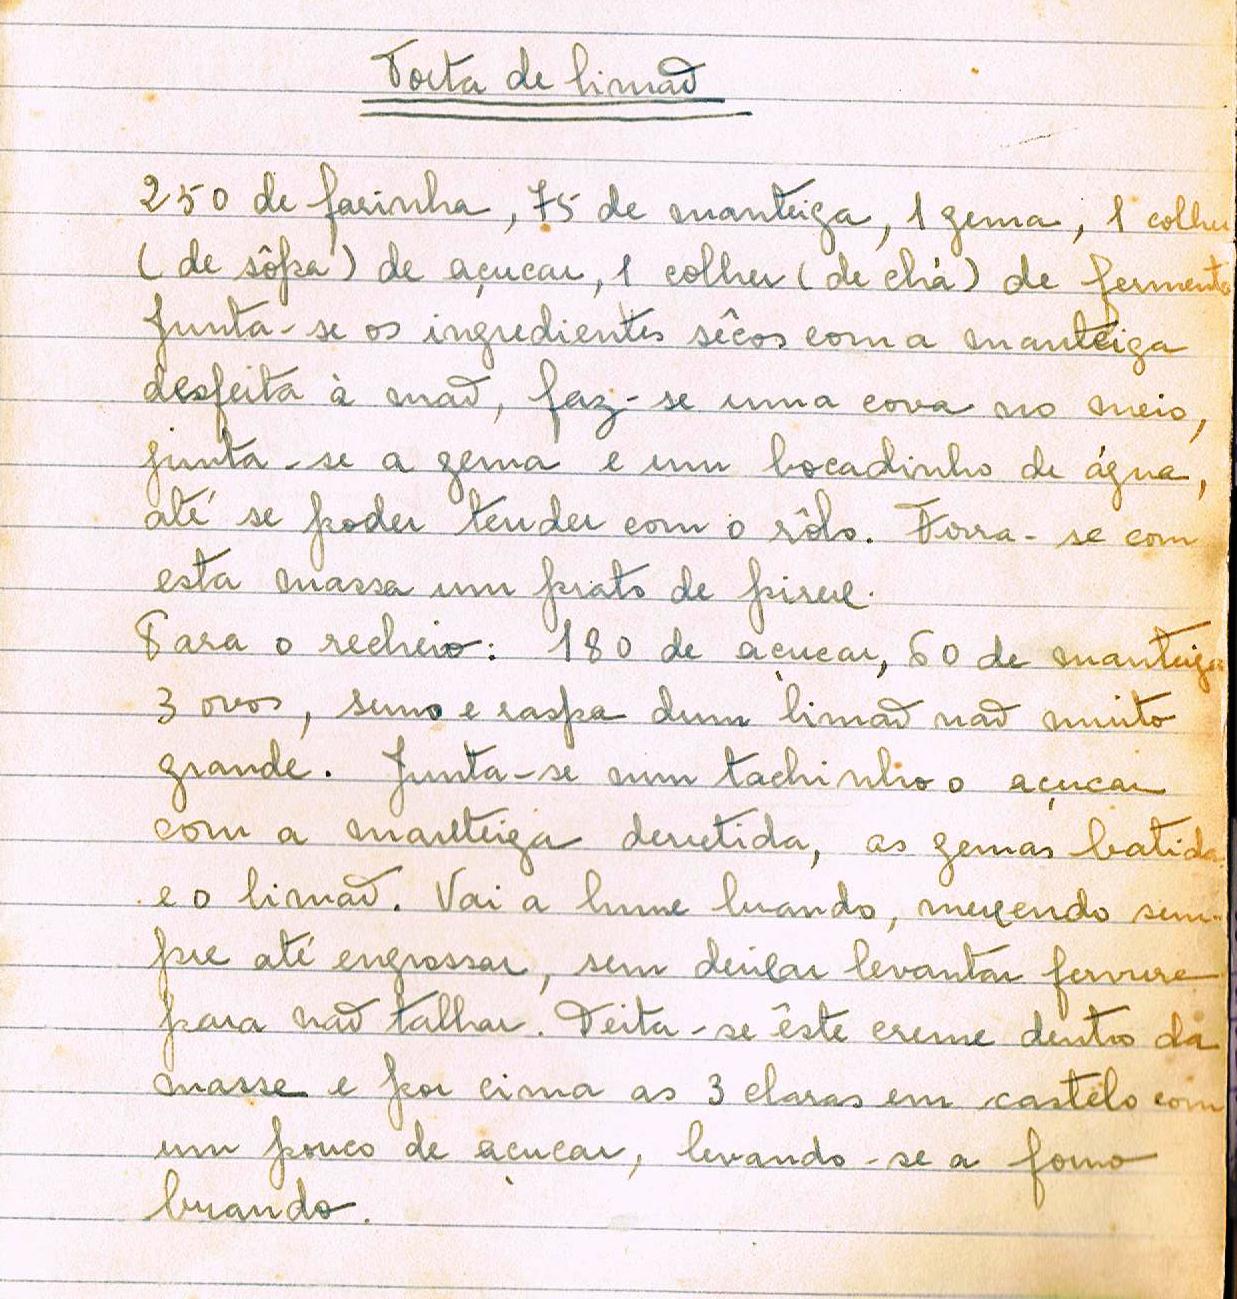 Torta de limão
250 de farinha, 75 de manteiga, 1 gema, 1 colher
(de sôpa) de açucar, 1 colher (de chá) de fermento
Junta-se os ingredientes sêcos com a manteiga
desfeita à mão, faz-se uma cova no meio,
junta-se a gema e um bocadinho de água,
até se poder tender com o rôlo. Forra-se com
esta massa um prato de pirex.
Para o recheio: 180 de açucar, 60 de manteiga
3 ovos, sumo e raspa dum limão não muito
grande. Junta-se num tachinho o açucar
com a manteiga derretida, as gemas batidas
e o limão. Vai a lume brando, mexendo sem-
pre até engrossar, sem deixar levantar fervura
para não talhar. Deita-se êste creme dentro da
massa e por cima as 3 claras em castelo com
um pouco de açucar, levando-se a forno
brando.